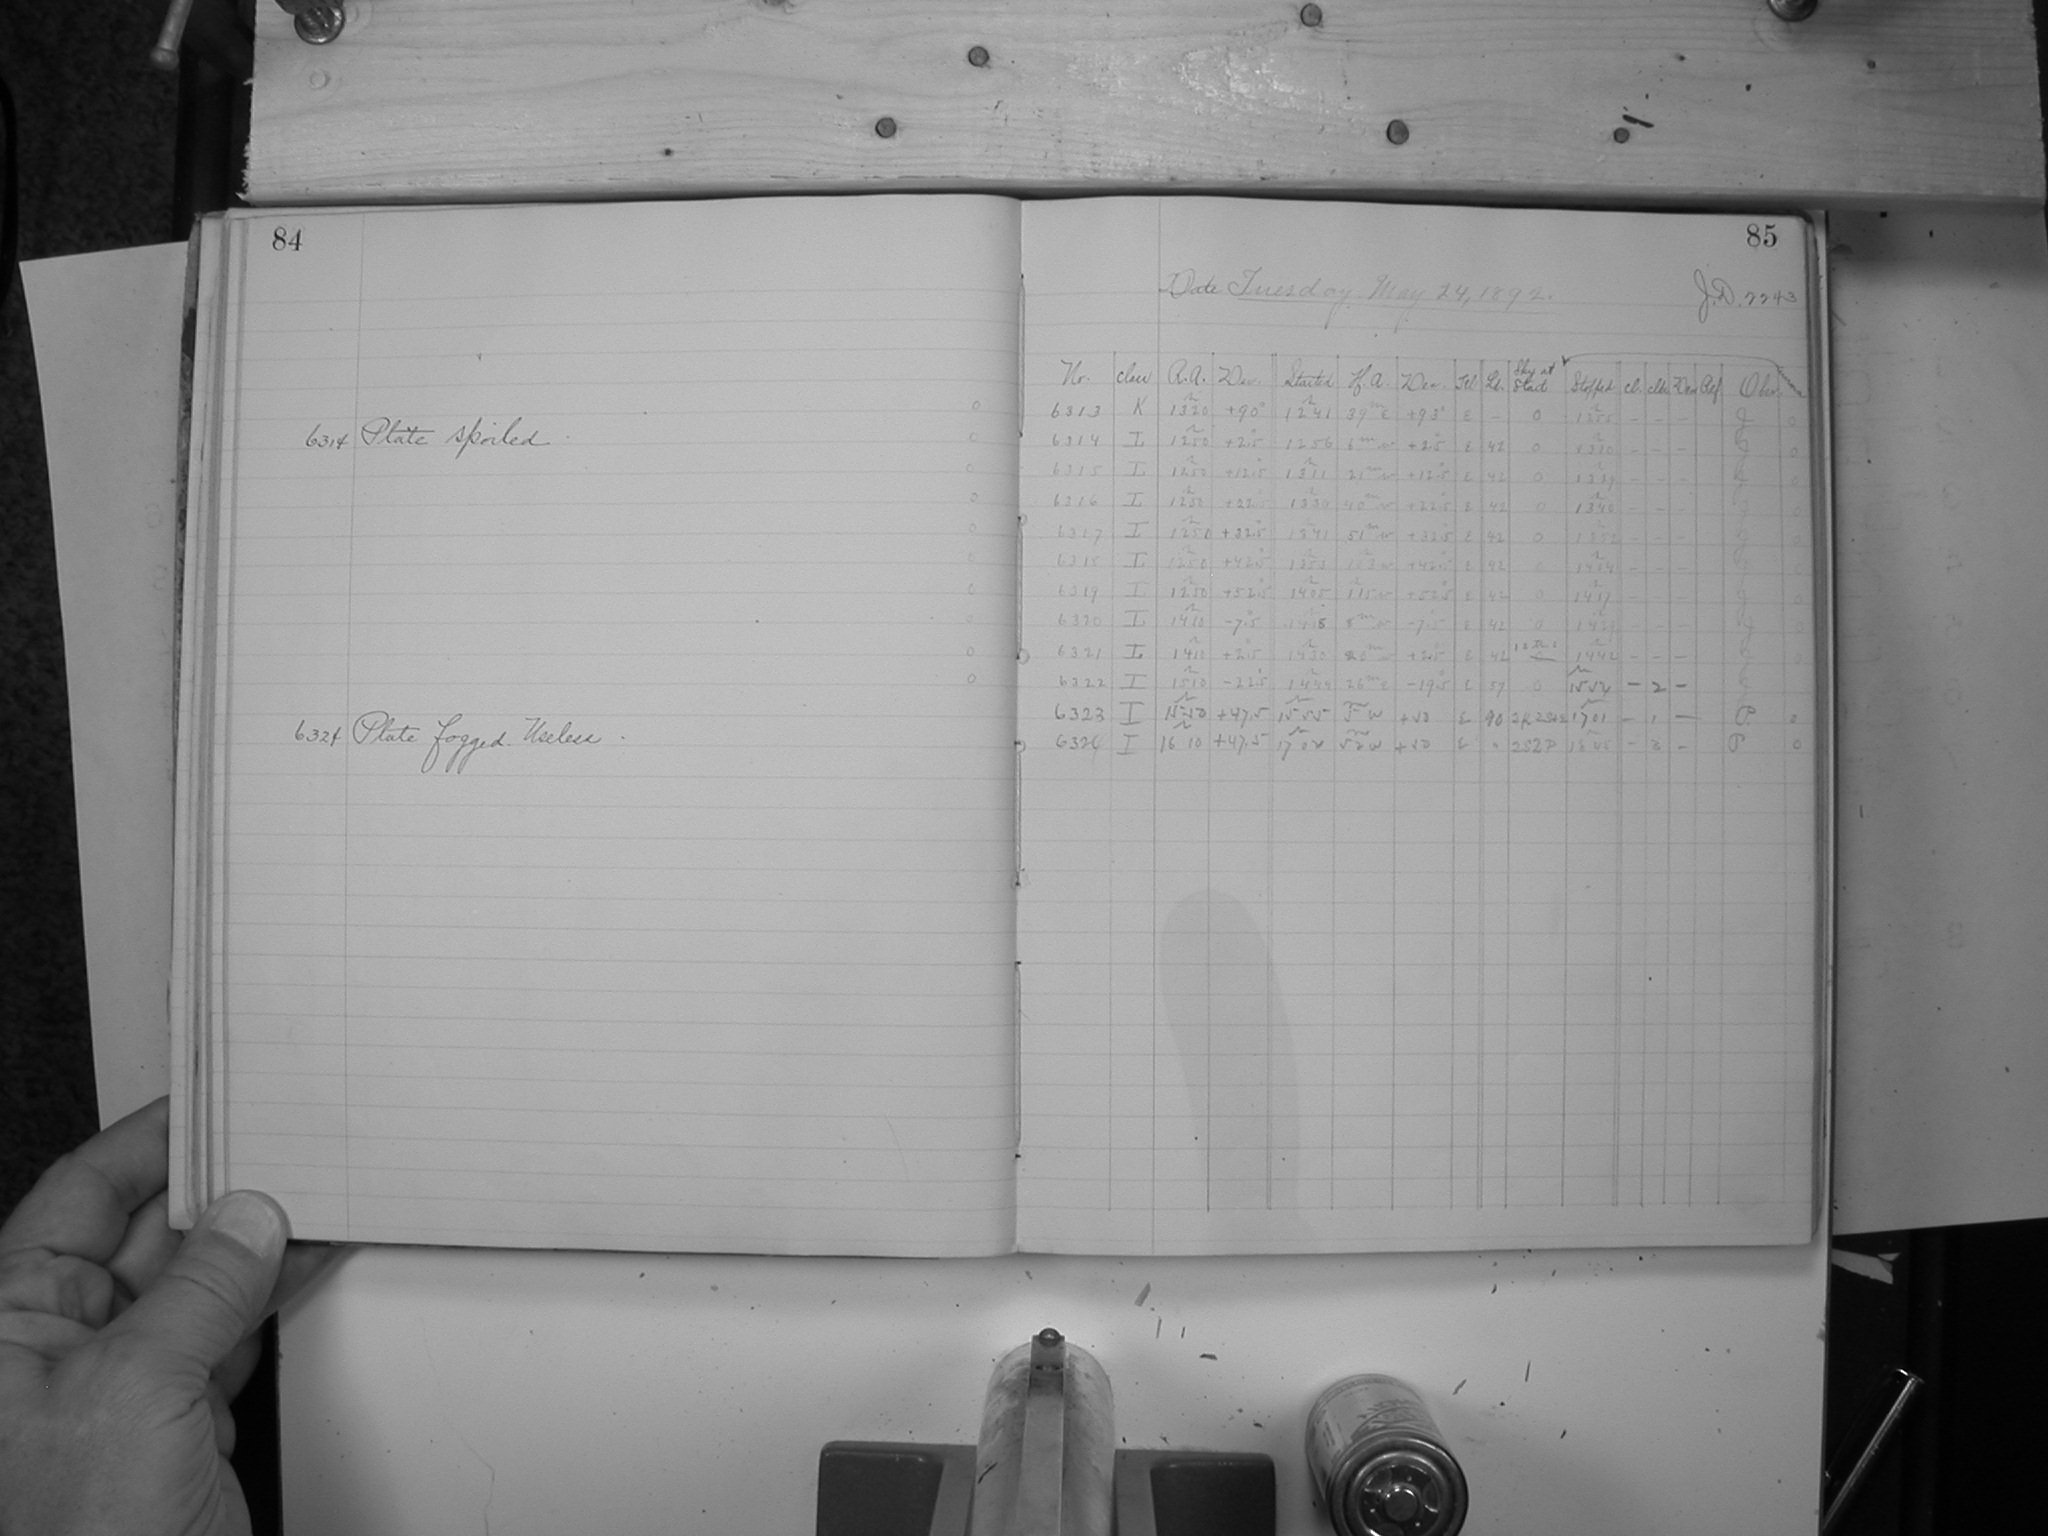 84
6314 Plate spoiled
6324 Plate fogged. Useless
85
Date Tuesday May 24, 1892.
J.D. 2243
No. class R.A. Dec. Started H.A. Dec. Tel Ld. Sky at Start Stopped cl. clks Dew Ref Obsr.
6313 K 1320 +90° 1241 39m E +93° E - 0 1255 - - - J 0
6314 I 1250 +2.5 1256 6m w +2.5 E 42 0 1310 - - - J 0
6315 I 1250 +12.5 1311 21m w +12.5 E 42 0 - - - J 0
6316 I 1250 +22.5 1330 40m w +22.5 E 42 0 1340 - - - 0
6317 I 1250 +32.5 1341 51m w +32.5 E 42 0 1352 - - - J 0
I 1250 +42.5 1353 +42.5 E 42 0 1404 - - -
6319 I 1250 +52.5 1405 +52.5 E 42 0 1417 - - - J 0
6320 I 1410 -7.5 1418 8m w -7.5 E 42 0 1429 - - - 0
6321 I 1410 +2.5 1430 20m w +2.5 E 42 1442 - - -
6322 I 1510 -22.5 1444 26m E -19.5 E 57 0 1552 - 2 -
6323 I 1550 +47.5 1555 5m w +50 E 90 1701 - 1 - P 0
6324 I 16 10 +47.5 1702 52m w +50 E " 2S2P 1845 - 3 - P 0